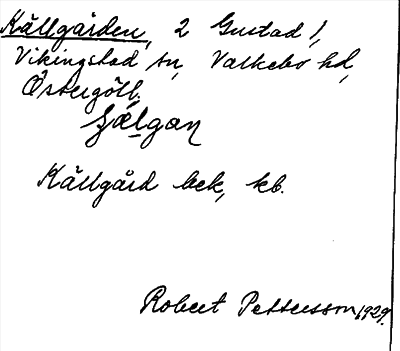 Källgården, 2 Gustad /,
Vikingstad sn, Valkebo hd,
Östergötl.
Källgård bek, kb.
Robert Pettersson 1929.